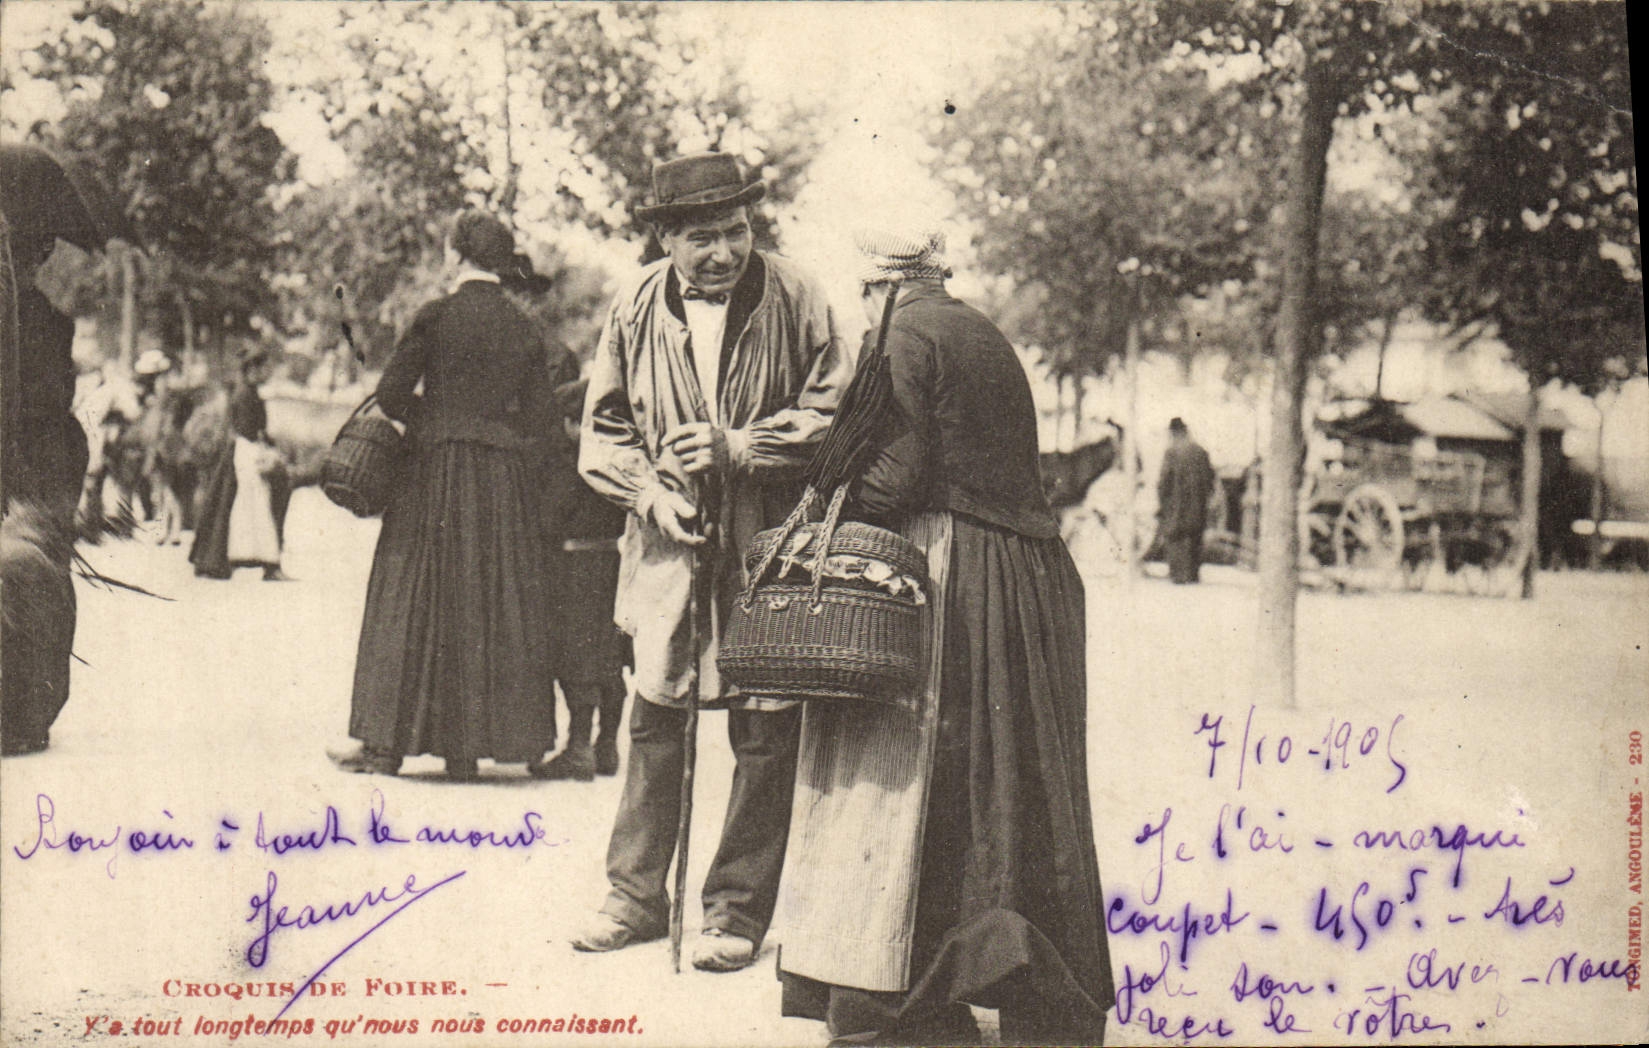 7/10-1905
Je l'ai - marqui
coupet - 450f. - très
joli son. - Avez - vous
reçu le vôtre.
Bonjour à tout le monde
Jeanne
CROQUIS DE FOIRE. —
Y'a tout longtemps qu'nous nous connaissant.
ANGOULÊME - 230